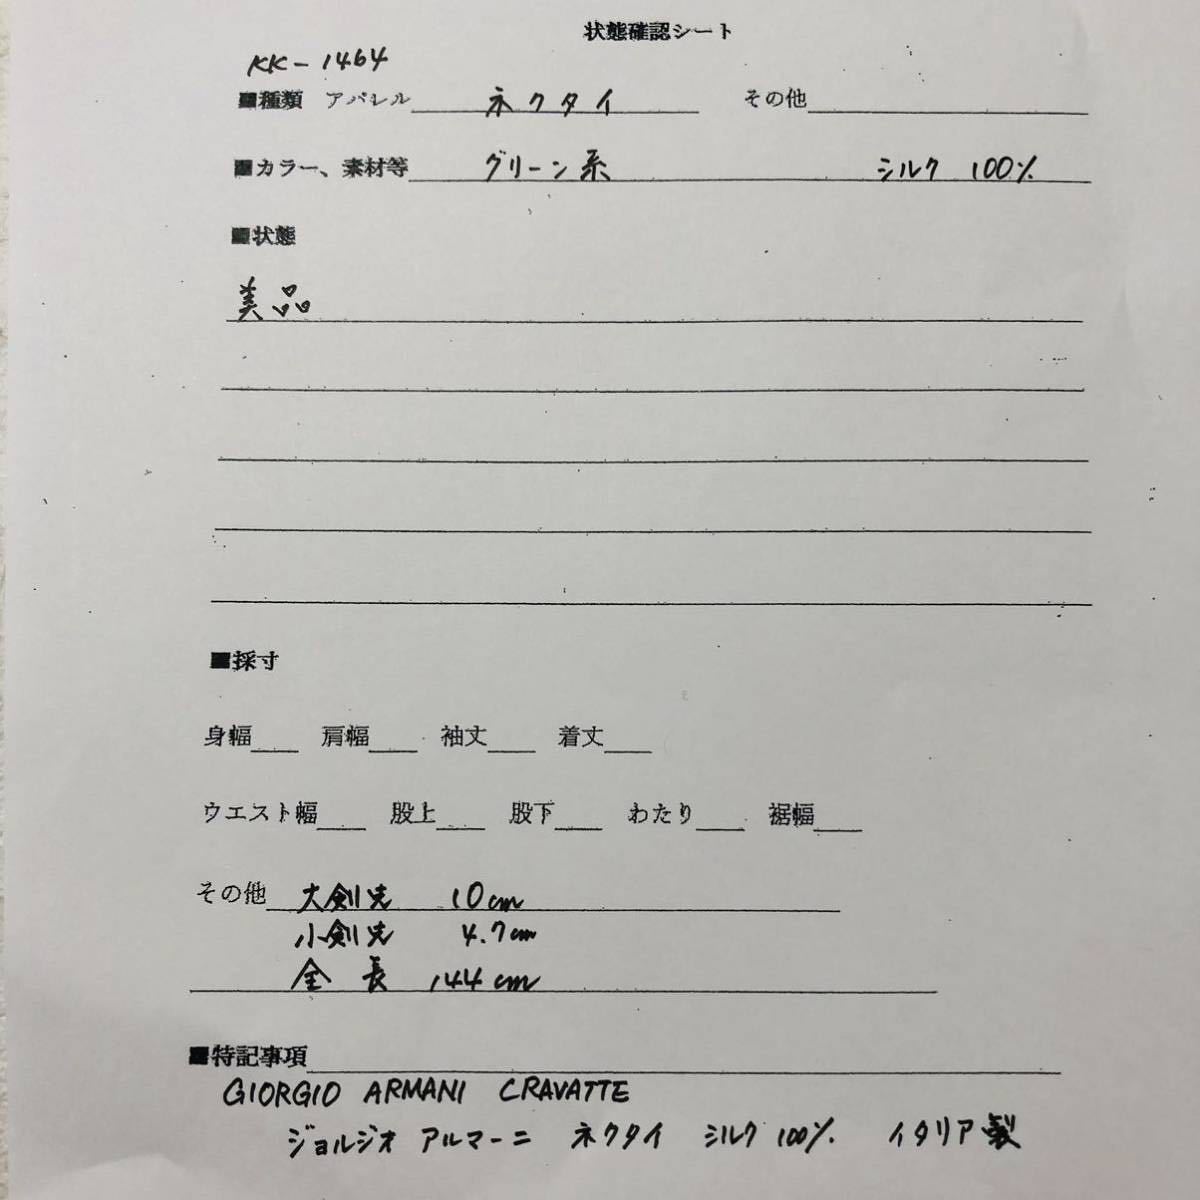 状態確認シート
KK-1464
■種類 アパレル ネクタイ その他
■カラー、素材等 グリーン系 シルク 100%
■状態
美品
■採寸
身幅 肩幅 袖丈 着丈
ウエスト幅 股上 股下 わたり 裾幅
その他 大剣先 10cm
小剣先 4.7cm
全長 144cm
■特記事項
GIORGIO ARMANI CRAVATTE
ジョルジオ アルマーニ ネクタイ シルク 100% イタリア製